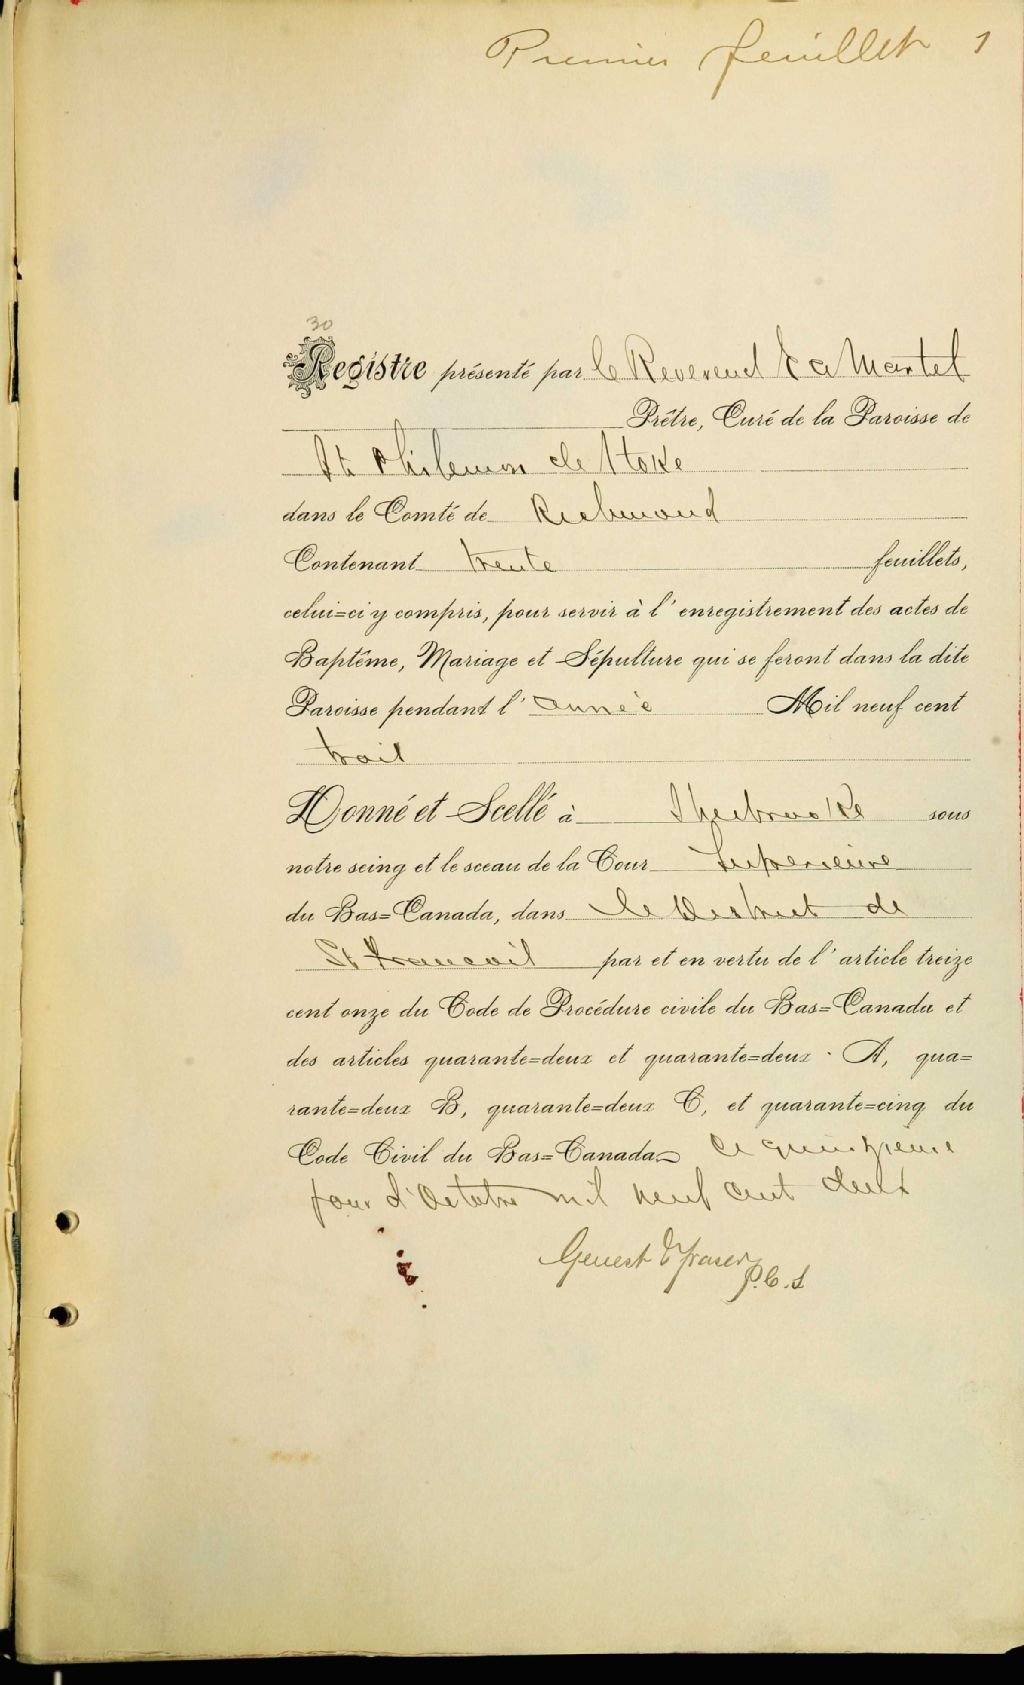 Premier feuillet 1
30
Registre présenté par le Reverend E a Martel
Prêtre, Curé de la Paroisse de
St Philemon de Stoke
dans le Comté de Richmond
Contenant trente feuillets,
celui=ci y compris, pour servir à l'enregistrement des actes de
Baptême, Mariage et Sépulture qui se feront dans la dite
Paroisse pendant l'année Mil neuf cent
trois
Donné et Scellé à Sherbrooke sous
notre seing et le sceau de la Cour Superieure
du Bas=Canada, dans le District de
St François par et en vertu de l'article treize
cent onze du Code de Procédure civile du Bas=Canada et
des articles quarante=deux et quarante=deux A, qua=
rante=deux B, quarante=deux C, et quarante=cinq du
Code Civil du Bas=Canada ce quinzieme
jour d'Octobre mil neuf cent deux
Genest & Fraser
P.C.S